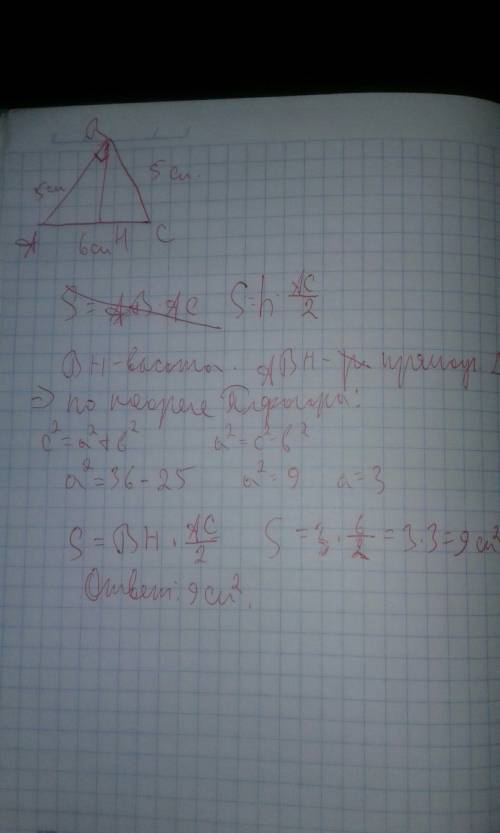 B
5см 5см.
A 6см H C
S = AB · AC S=h · AC/2
BH-высота. ABH - прямоуг
⇒ по теореме Пифагора:
c²=a²+b² a²=c²-b²
a²=36-25 a²=9 a=3
S = BH · AC/2 S = 3 · 6/2 = 3·3=9см²
Ответ: 9см².